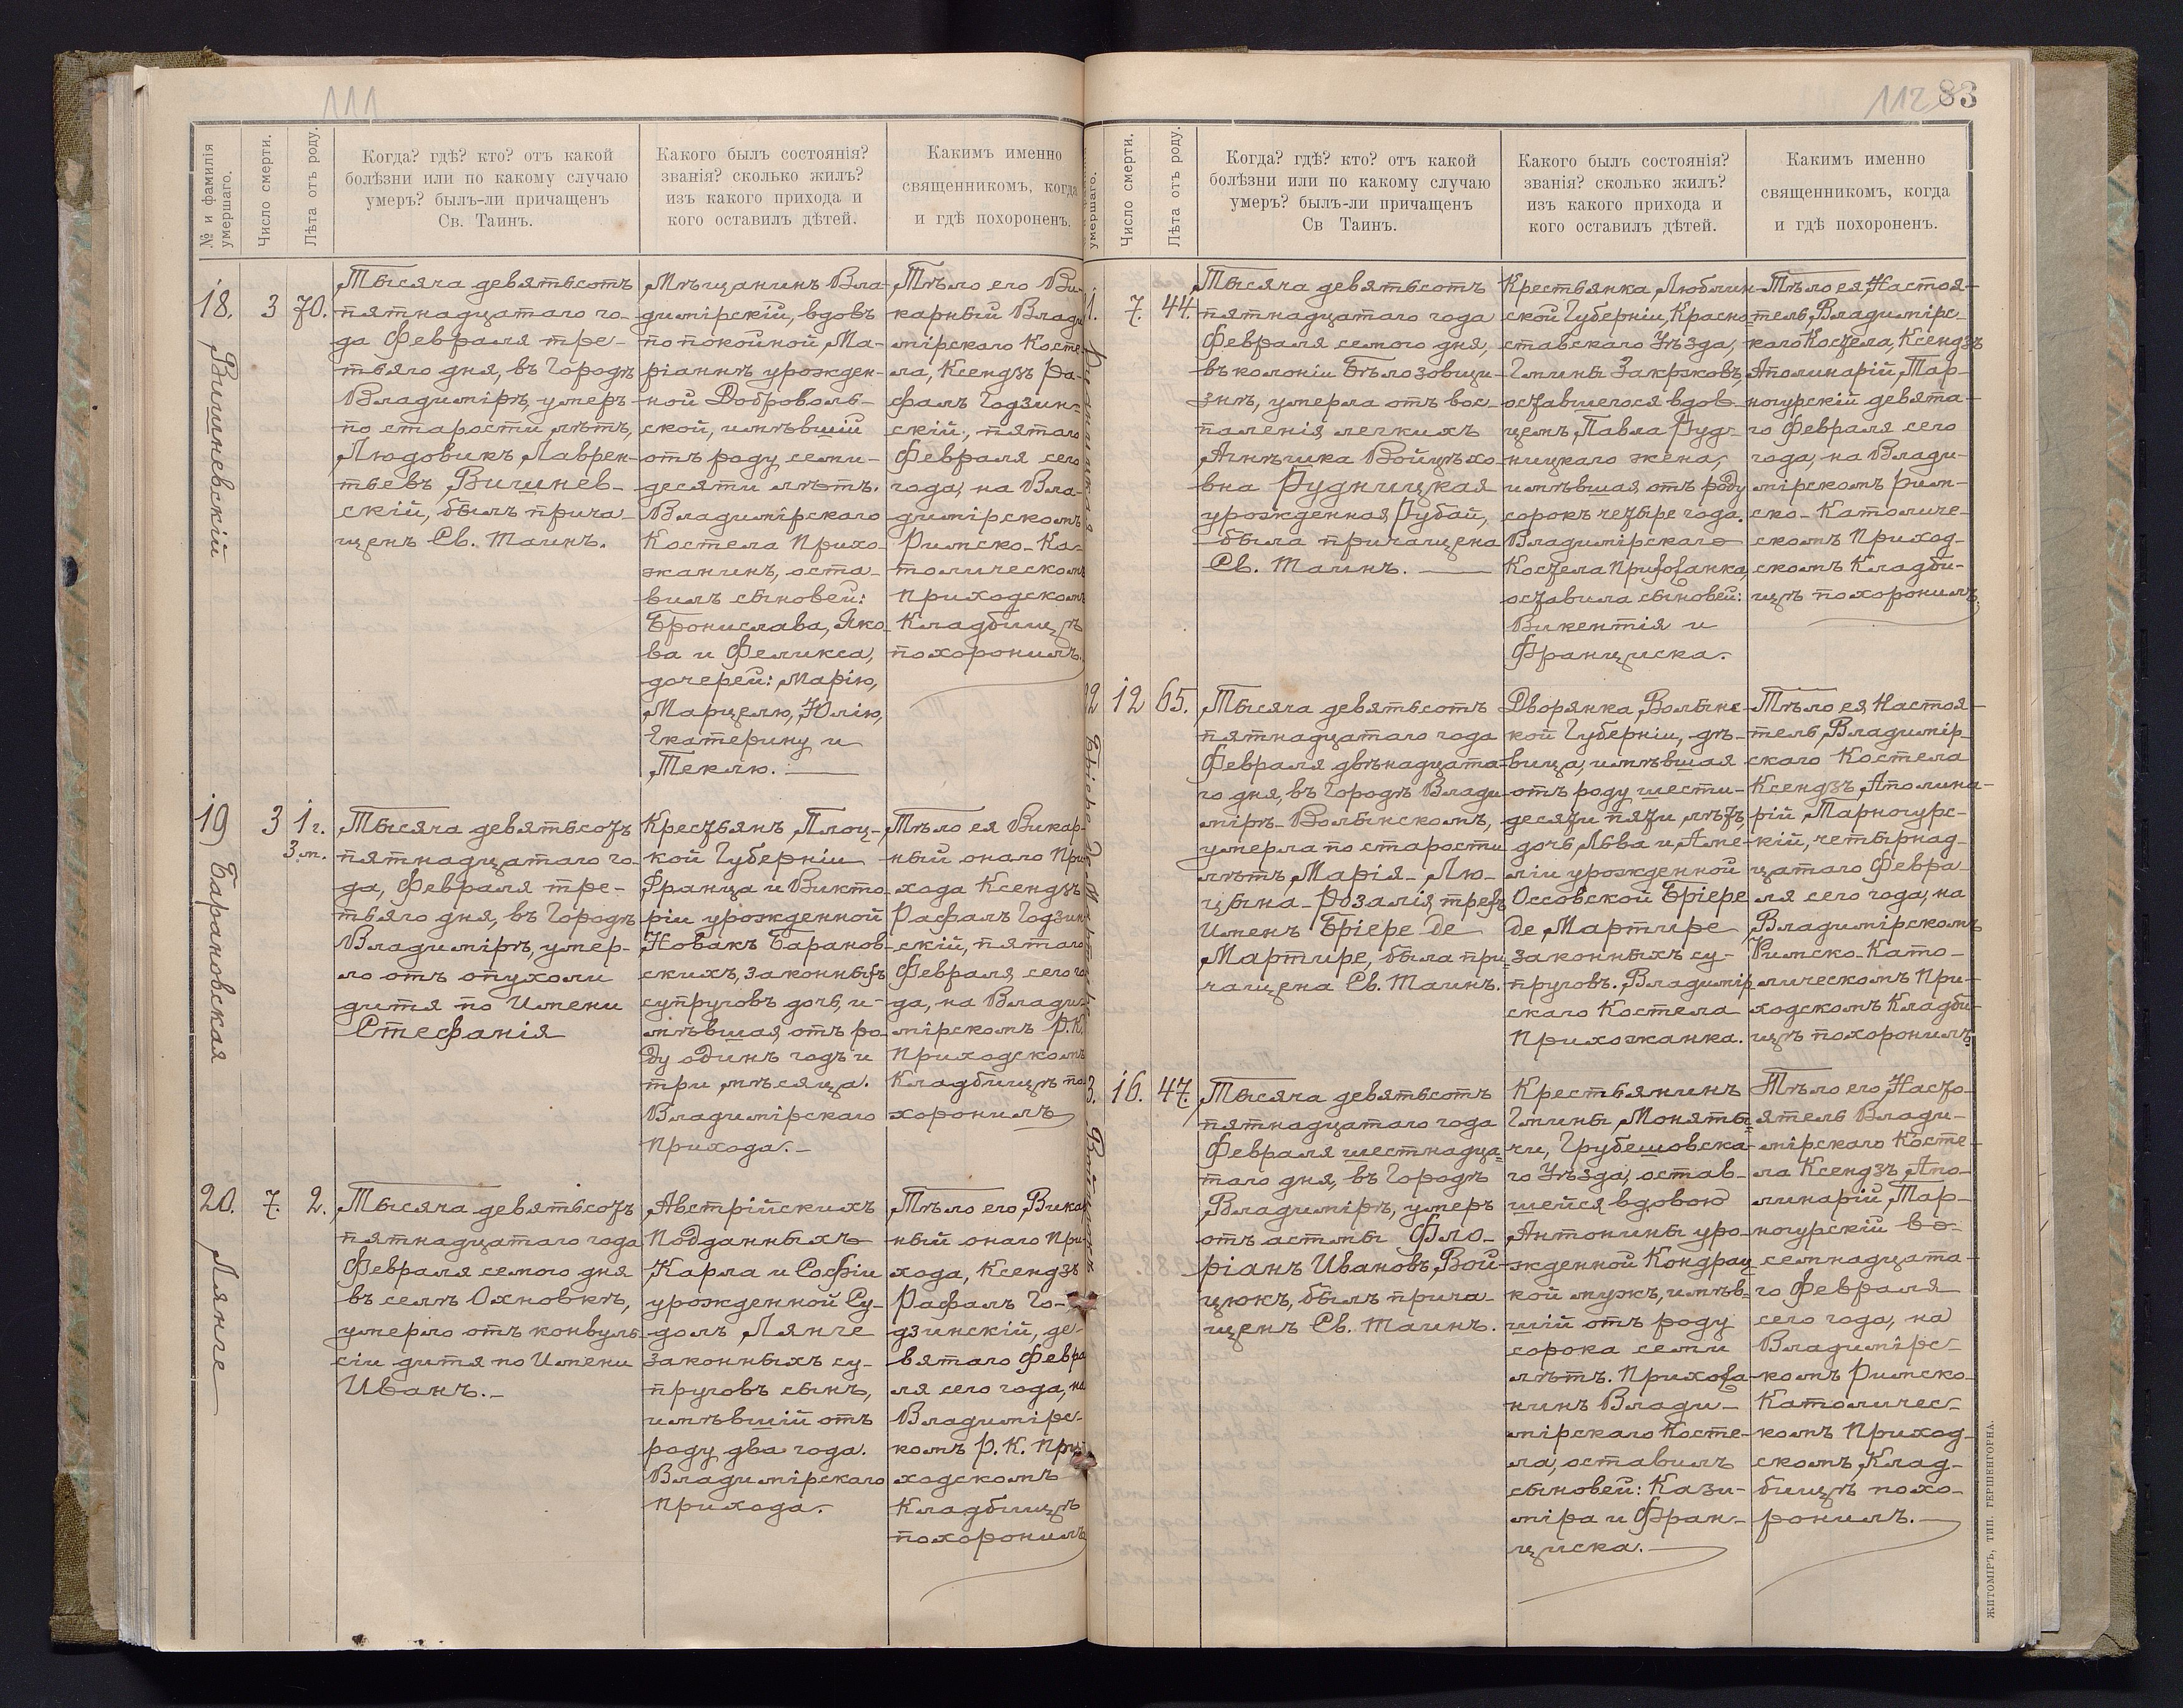 111
№ и фамилія умершаго.
Число смерти.
Лѣта отъ роду.
Когда? гдѣ? кто? отъ какой
болѣзни или по какому случаю
умеръ? былъ-ли причащенъ
Св. Таинъ.
Какого былъ состоянія?
званія? сколько жилъ?
изъ какого прихода и
кого оставилъ дѣтей.
Какимъ именно
священникомъ, когда
и гдѣ похороненъ.
18.
Вишневскій
3
70.
Тысяча девятьсотъ
пятнадцатаго го-
да Февраля тре-
тьяго дня, въ Городѣ
Владимірѣ, умеръ
по старости лѣтъ,
Людовикъ Лаврен-
тьевъ Вишнев-
скій, былъ прича-
щенъ Св. Таинъ.
Мѣщанинъ Вла-
димірскій, вдовъ
по покойной Ма-
ріаннѣ урожден-
ной Доброволь-
ской, имѣвшій
отъ роду семи-
десяти лѣтъ.
Владимірскаго
Костела Прихо-
жанинъ, оста-
вилъ сыновей:
Бронислава, Яко-
ва и Феликса,
дочерей: Марію,
Марцелю, Юлію,
Екатерину и
Теклю.
Тѣло его Ви-
карный Влади
мірскаго Косте-
ла, Ксендзъ Ра-
фалъ Годзин-
скій, пятаго
Февраля сего
года, на Вла-
димірскомъ
Римско-Ка-
толическомъ
Приходскомъ
Кладбищѣ
похоронилъ.
19)
Барановская
3
1 г.
3 м.
Тысяча девятьсотъ
пятнадцатаго го-
да, Февраля тре-
тьяго дня, въ Городѣ
Владимірѣ, умер-
ло отъ опухоли
дитя по Имени
Стефанія
Крестьянъ Плоц-
кой Губерніи
Франца и Викто-
ріи урожденной
Новакъ Баранов-
скихъ, законныхъ
супруговъ дочь, и-
мѣвшая отъ ро-
ду одинъ годъ и
три мѣсяца.
Владимірскаго
Прихода.-
Тѣло ея Викар-
ный онаго При
хода Ксендзъ
Рафалъ Годзин
скій, пятаго
Февраля сего го
да, на Влади-
мірскомъ Р.К.
Приходскомъ
Кладбищѣ по-
хоронилъ
20.
Лянге
7.
2.
Тысяча девятьсотъ
пятнадцатаго года
Февраля семого дня
въ селѣ Охновкѣ,
умерло отъ конвуль-
сіи дитя по Имени
Иванъ.-
Австрійскихъ
Подданныхъ
Карла и Софіи
урожденной Су-
долъ Лянге
законныхъ су-
пруговъ сынъ,
имѣвшій отъ
роду два года.
Владимірскаго
Прихода.-
Тѣло его, Викар
ный онаго При-
хода, Ксендзъ
Рафалъ Го-
дзинскій, де-
вятаго Февра
ля сего года, на
Владимірс-
комъ Р. К. При
ходскомъ
Кладбищѣ
похоронилъ
112
83
умершаго.
Число смерти.
Лѣта отъ роду.
Когда? гдѣ? кто? отъ какой
болѣзни или по какому случаю
умеръ? былъ-ли причащенъ
Св Таинъ.
Какого былъ состоянія?
званія? сколько жилъ?
изъ какого прихода и
кого оставилъ дѣтей.
Какимъ именно
священникомъ, когда
и гдѣ похороненъ.
1.
7.
44.
Тысяча девятьсотъ
пятнадцатаго года
Февраля семого дня,
въ колоніи Бѣлозовщи-
знѣ, умерла отъ вос-
паленія легкихъ
Агнѣшка Войцѣхо
вна Рудницкая
урожденная Рубай,
была причащена
Св. Таинъ.
Крестьянка Люблин-
ской Губерніи, Красно-
ставскаго Уѣзда,
Гмины Закржовъ,
оставшегося вдов-
цемъ Павла Руд-
ницкаго жена,
имѣвшая отъ роду
сорокъ четыре года.
Владимірскаго
Костела Прихожанка,
оставила сыновей:
Викентія и
Франциска.
Тѣло ея, Настоя-
тель Владимірс-
каго Костела, Ксендзъ
Аполинарій Тар-
ногурскій девята-
го Февраля сего
года, на Влади-
мірскомъ Рим-
ско-Католиче-
скомъ Приход-
скомъ Кладби-
щѣ похоронилъ.
22
12
65.
Тысяча девятьсотъ
пятнадцатаго года
Февраля двѣнадцата-
го дня, въ Городѣ Влади-
мірѣ-Волынскомъ,
умерла по старости
лѣтъ, Марія-Лю-
цына-Розалія трехъ
Именъ Бріере де
Мартире, была при-
чащена Св. Таинъ.
Дворянка Волынс-
кой Губерніи, дѣ-
вица, имѣвшая
отъ роду шести-
десяти пяти лѣтъ,
дочь Льва и Аме-
ліи урожденной
Оссовской Бріере
де Мартире
законныхъ су-
пруговъ. Владимір
скаго Костела
Прихожанка.
Тѣло ея Настоя-
тель Владимір-
скаго Костела
Ксендзъ Аполина-
рій Тарногурс-
кій, четырнад-
цатаго Февра-
ля сего года, на
Владимірскомъ
Римско-Като-
лическомъ При-
ходскомъ Кладби-
щѣ похоронилъ.
3.
16.
47.
Тысяча девятьсотъ
пятнадцатаго года
Февраля шестнадца-
таго дня, въ Городѣ
Владимірѣ, умеръ
отъ астмы Фло-
ріанъ Ивановъ Вой-
цюкъ, былъ прича-
щенъ Св. Таинъ.
Крестьянинъ
Гмины Моняты-
чи, Грубешовска-
го Уѣзда, остав-
шейся вдовою
Антонины уро-
жденной Кондрац
кой мужъ, имѣв-
шій отъ роду
сорока семи
лѣтъ. Прихожа-
нинъ Влади-
мірскаго Косте-
ла, оставилъ
сыновей: Кази-
міра и Фран-
циска.
Тѣло его, Насто-
ятель Влади-
мірскаго Косте-
ла Ксендзъ Апо-
линарій Тар-
ногурскій во
семнадцата-
го Февраля
сего года, на
Владимірс-
комъ Римско-
Католичес-
комъ Приход-
скомъ Клад-
бищѣ похо-
ронилъ.
ЖИТОМІРЪ, ТИП. ГЕРШЕНГОРНА.